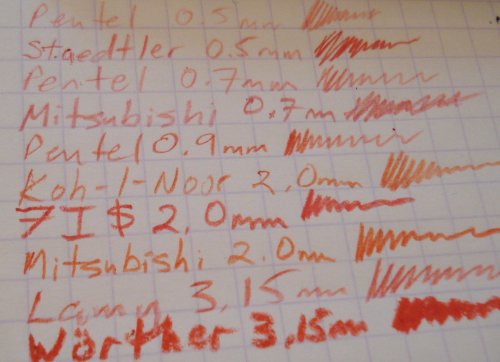 Pentel 0.5mm
Staedtler 0.5mm
Pentel 0.7mm
Mitsubishi 0.7m
Pentel 0.9mm
Koh-I-Noor 2.0mm
7 I $ 2.0mm
Mitsubishi 2.0mm
Lamy 3.15mm
Wörther 3.15mm